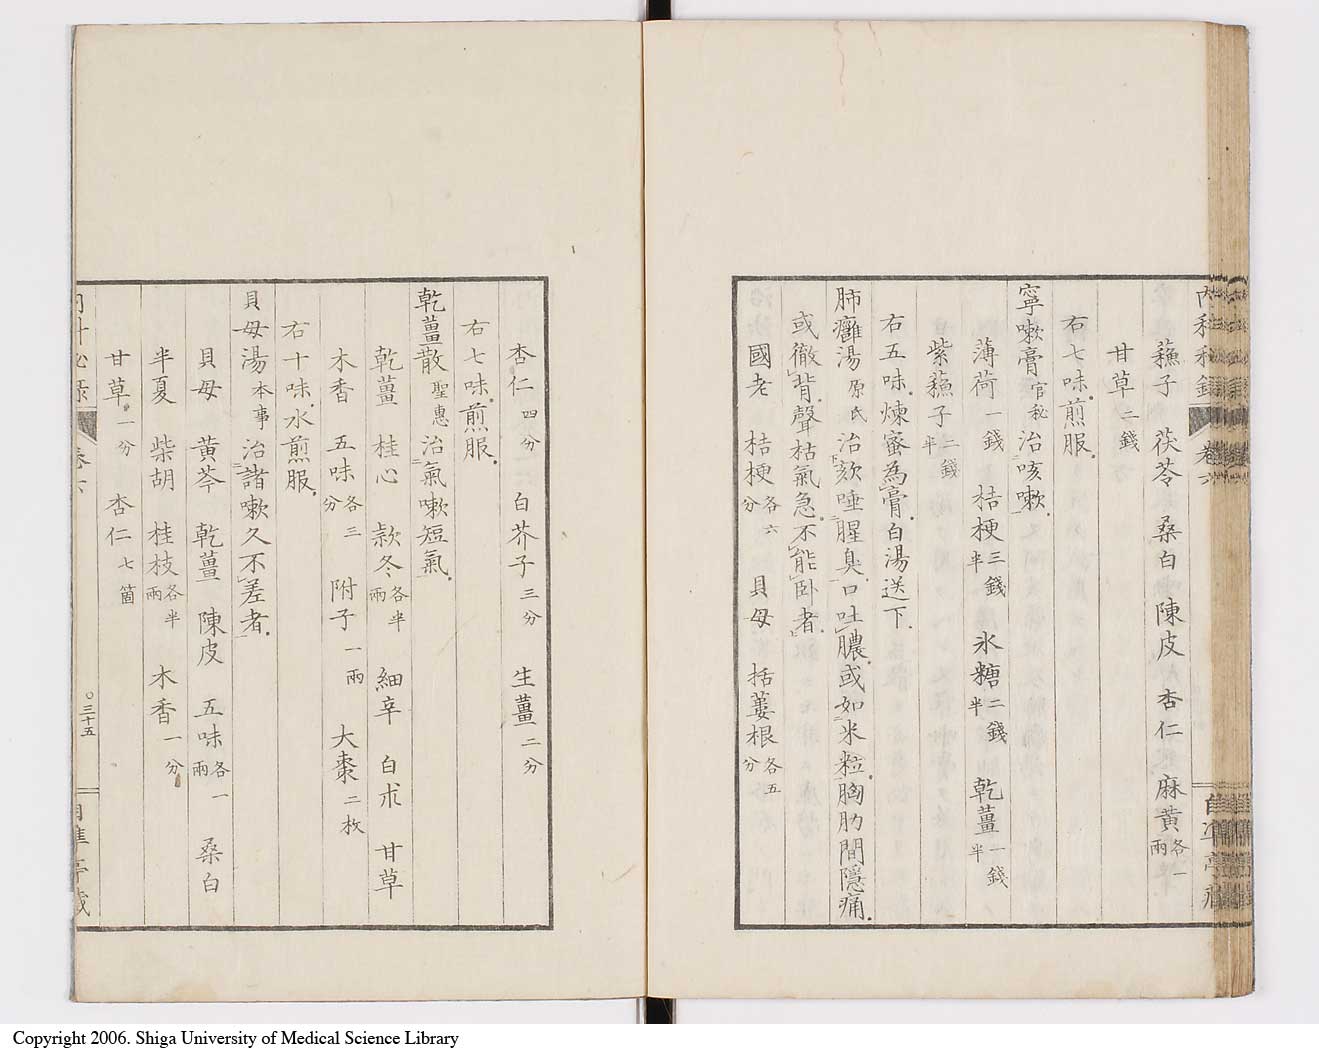 蘓子 茯苓 桑白 陳皮 杏仁 麻黄各一兩
甘草二錢
右七味煎服
寧嗽膏官秘治咳嗽
薄荷一錢 桔梗三錢半 氷糖二錢半 乾薑一錢半
紫蘓子二錢半
右五味煉蜜為膏白湯送下
肺癰湯原氏治欬唾腥臭口吐膿或如米粒胸肋間隱痛
或徹背聲枯氣急不能卧者
國老 桔梗各六分 貝母 括蔞根各五分
杏仁四分 白芥子三分 生薑二分
右七味煎服
乾薑散聖惠治氣嗽短氣
乾薑 桂心 款冬各半兩 細辛 白朮 甘草
木香 五味各三分 附子一兩 大棗二枚
右十味水煎服
貝母湯本事治諸嗽久不差者
貝母 黄芩 乾薑 陳皮 五味各一兩 桑白
半夏 柴胡 桂枝各半兩 木香一分
甘草一分 杏仁七箇
卷六
三十五
Copyright 2006. Shiga University of Medical Science Library